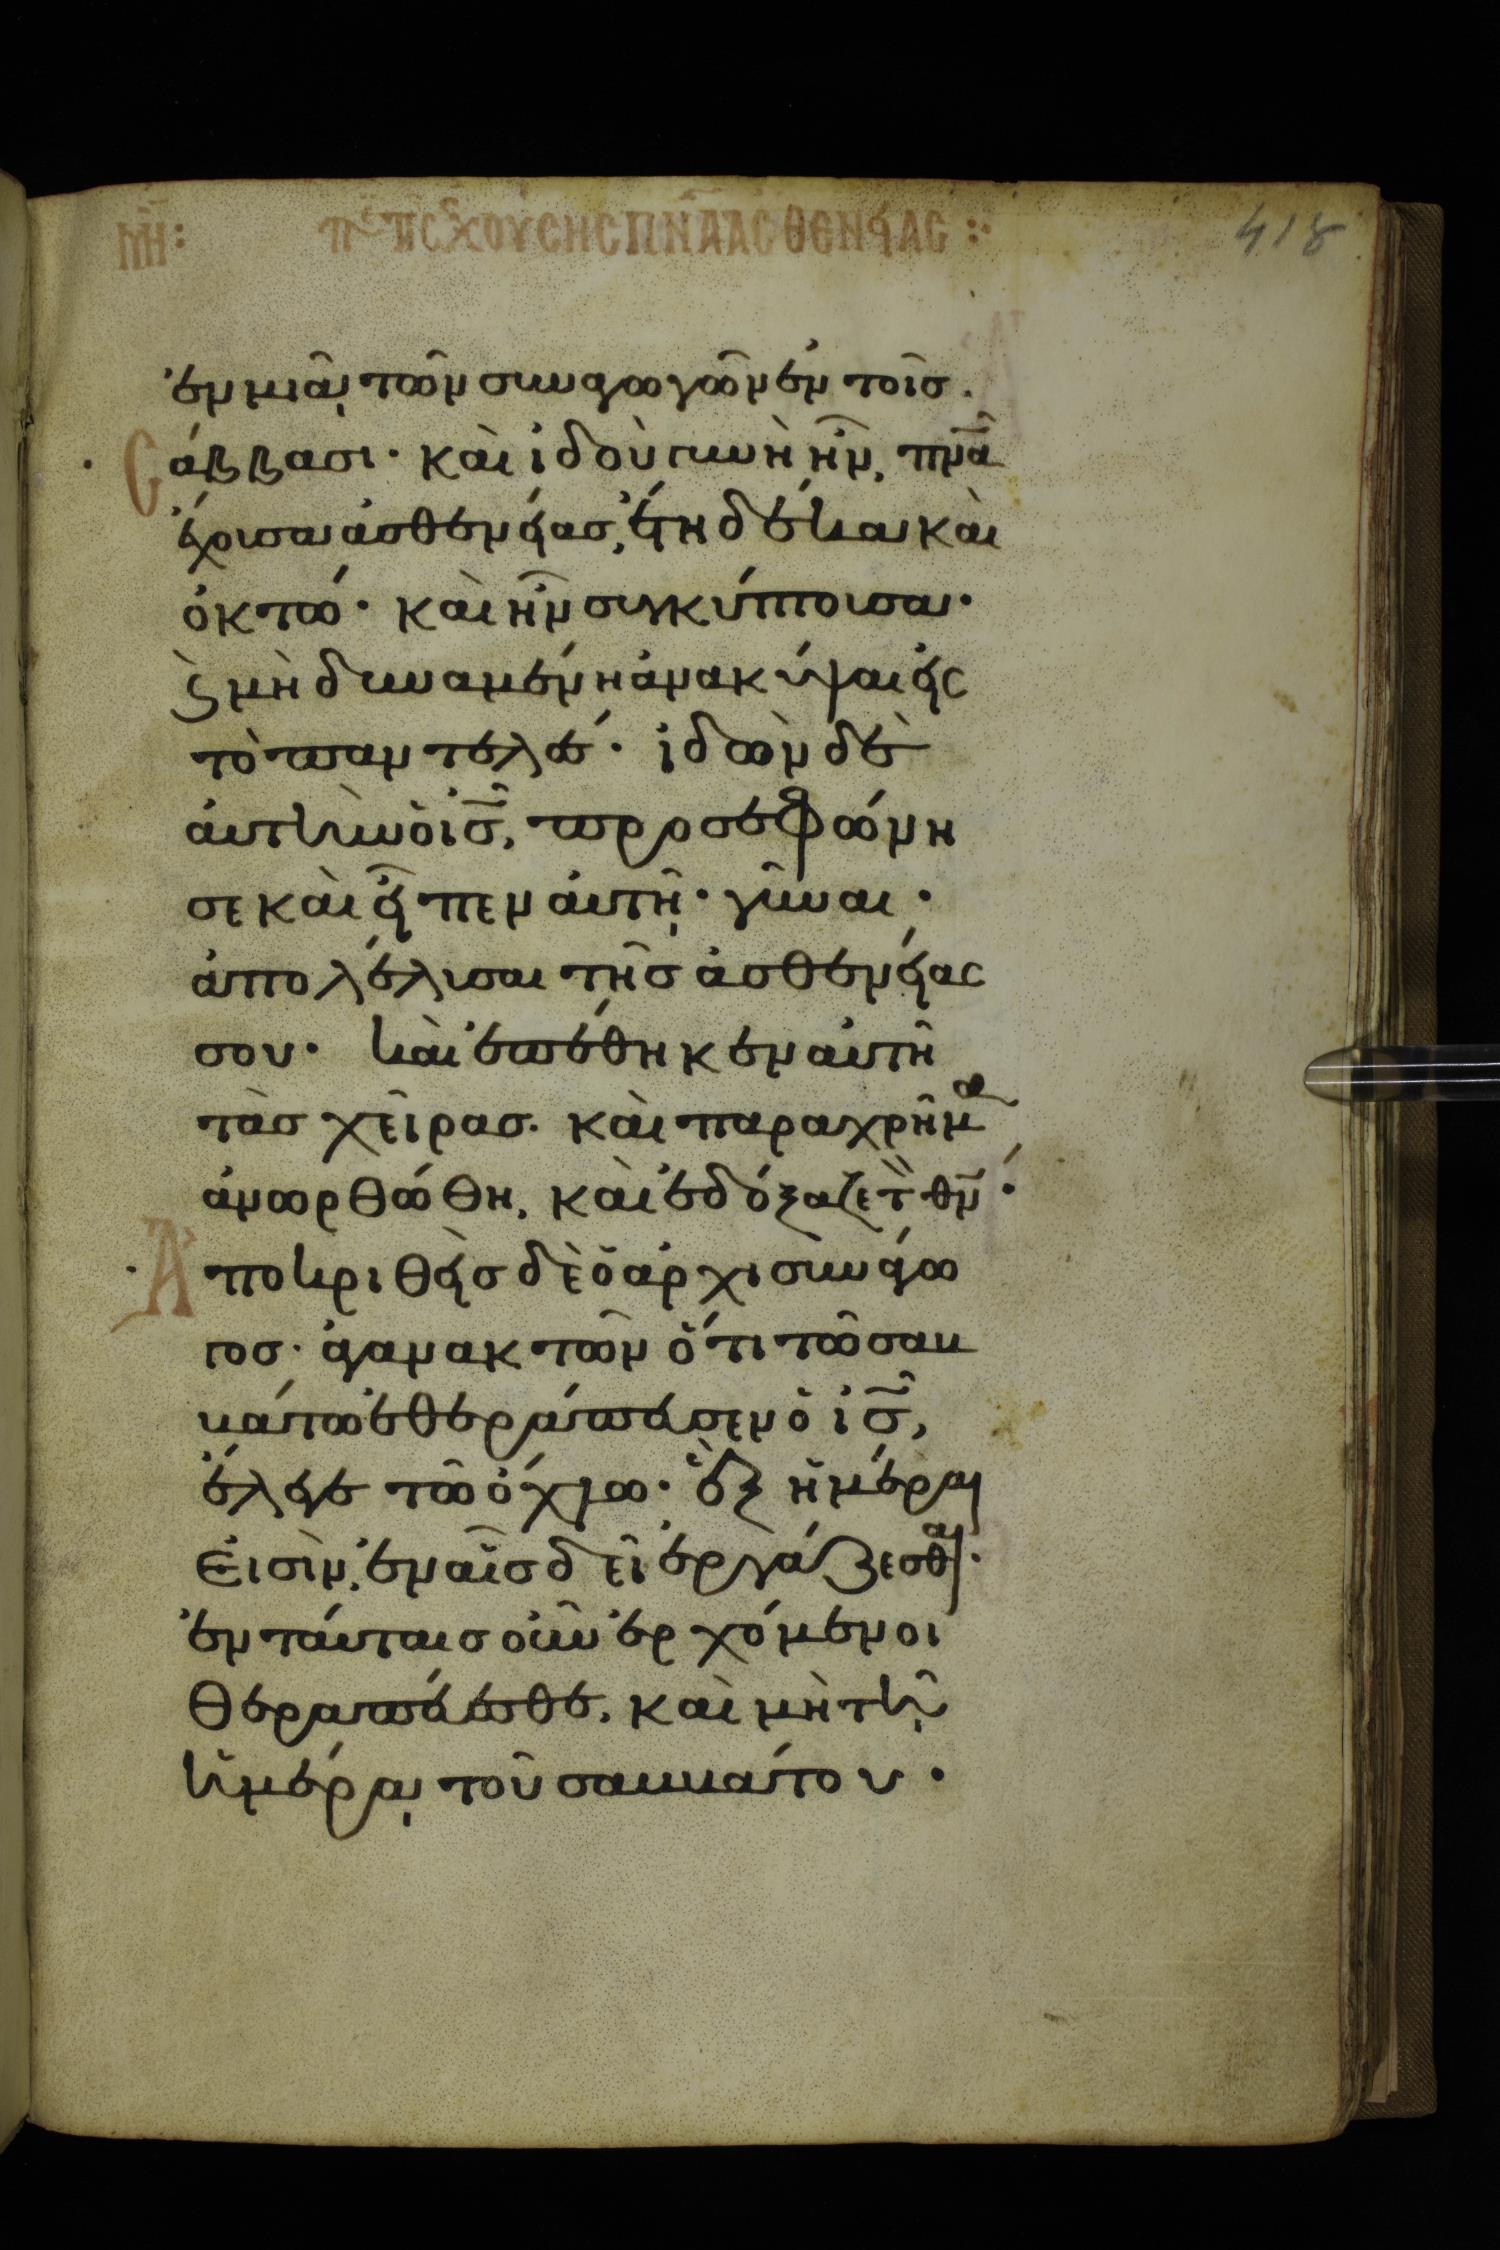 μη: πε τῆς ἐχούσης πν̅α ἀσθενείας :·
418
ἐν μιᾷ τῶν συναγωγῶν ἐν τοῖς.
Σάββασι· καὶ ἰδοὺ γυνὴ ἦν, πν̅α
ἔχουσα ἀσθενείας, ἔτη δέκα καὶ
ὀκτώ· καὶ ἦν συγκύπτουσα·
ϗ μὴ δυναμένη ἀνακύψαι εἰς
τὸ παντελές· ἰδὼν δὲ
αὐτὴν ὁ ις̅, προσεφώνη
σε καὶ εἶπεν αὐτῇ· γύναι·
ἀπολέλυσαι τῆς ἀσθενείας
σου· καὶ ἐπέθηκεν αὐτῆ
τὰς χεῖρας· καὶ παραχρῆμα
ἀνωρθώθη, καὶ ἐδόξαζε τὸν θν̅·
Ἀποκριθεὶς δὲ ὁ ἀρχισυνάγω
γος· ἀγανακτῶν ὅτι τῶ σαβ
βάτω ἐθεράπευσεν ὁ ις̅,
ἔλεγε τῶ ὄχλω· ἓξ ἡμέραι
εἰσὶν, ἐν αἷς δεῖ ἐργάζεσθαι·
ἐν ταύταις οὖν ἐρχόμενοι
θεραπεύεσθε, καὶ μὴ τῇ
ἡμέρᾳ τοῦ σαββάτου·